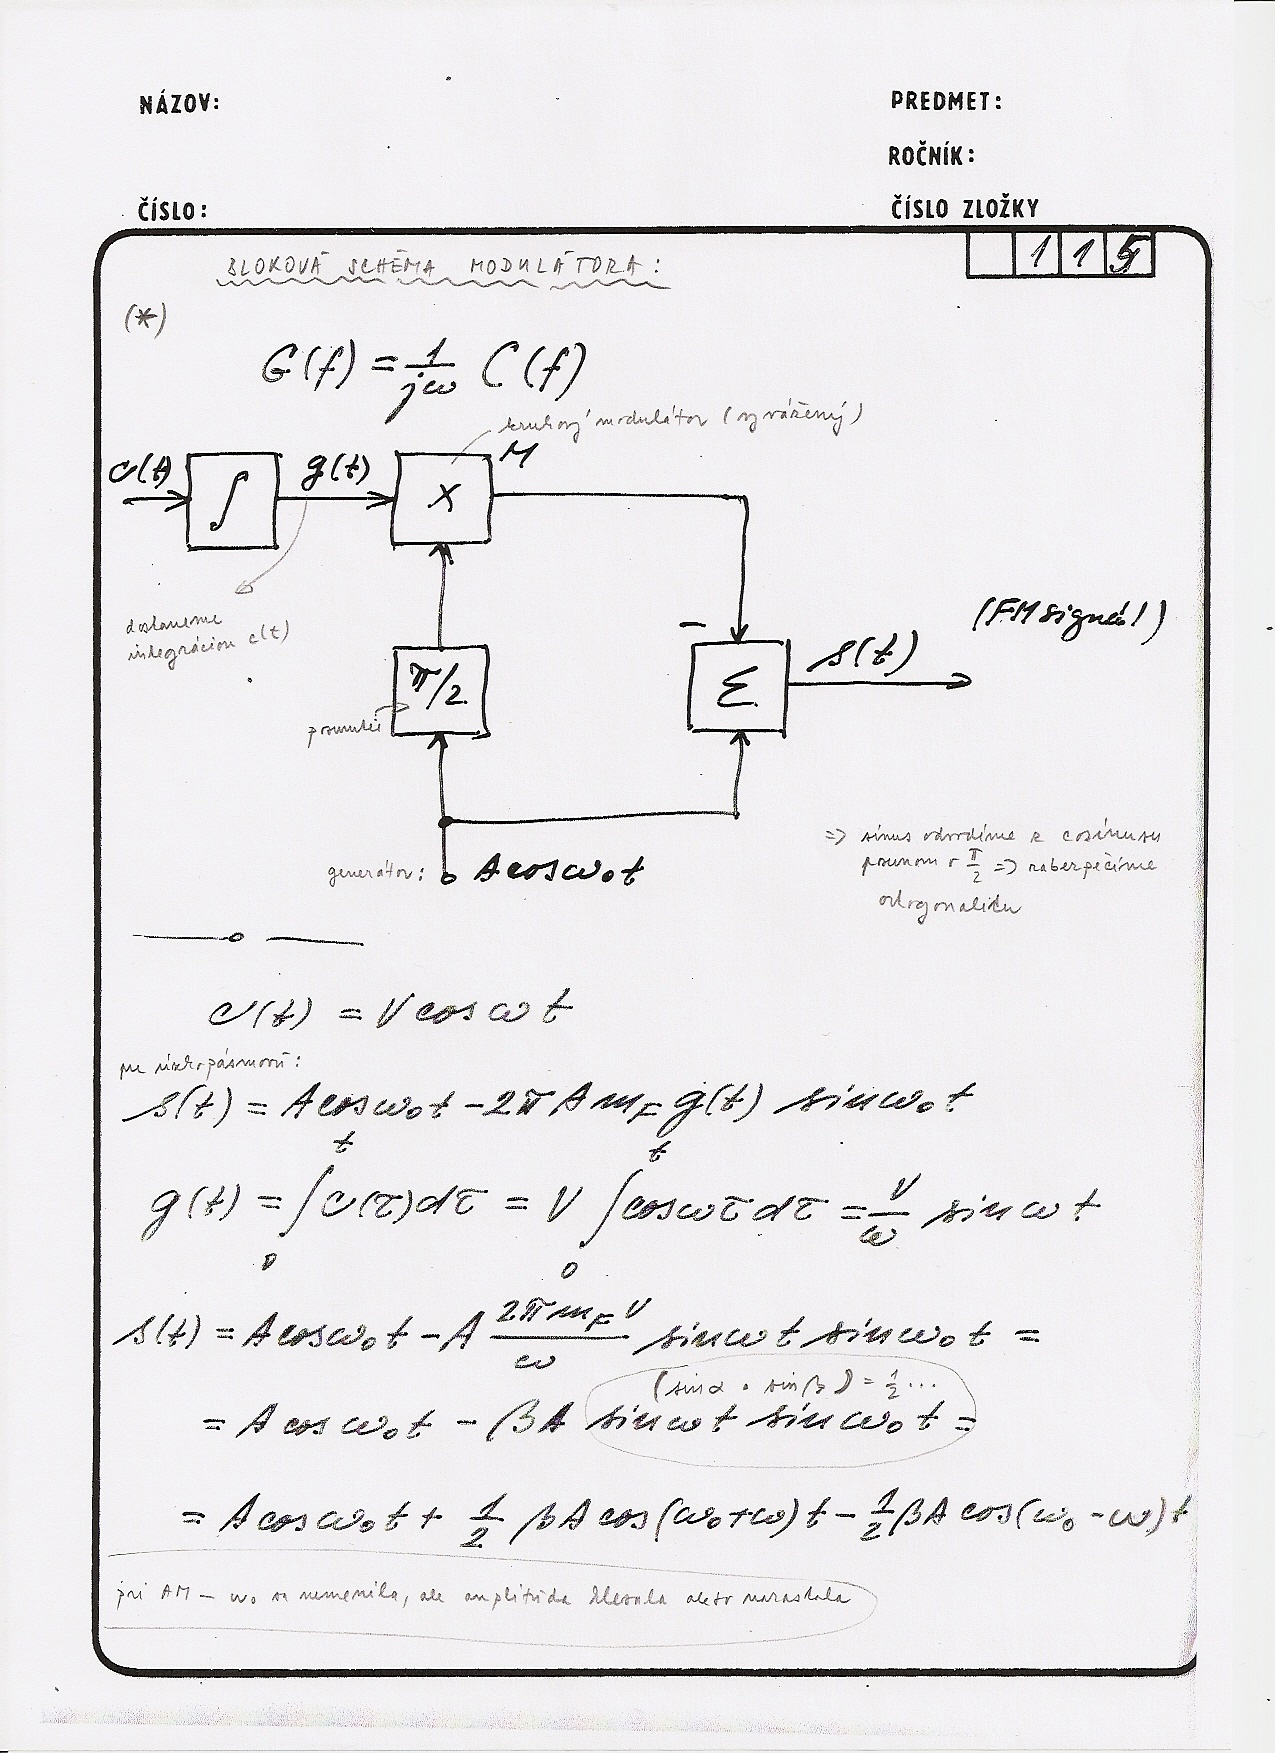 NÁZOV:
PREDMET:
ROČNÍK:
ČÍSLO:
ČÍSLO ZLOŽKY
115
BLOKOVÁ SCHÉMA MODULÁTORA:
(*)
G(f) = 1/jω C(f)
kruhový modulátor (vyvážený)
c(t) ∫ g(t) X M
dostaneme
integráciou c(t)
(FM signál)
π/2 − Σ s(t)
generátor: A cos ω₀t
=> sínus odvodíme z cosínusu
posunom o π/2 => zabezpečíme
ortogonalitu
c(t) = V cos ωt
pre úzkopásmovú:
s(t) = A cos ω₀t − 2π A m_F g(t) sin ω₀t
g(t) = ∫₀ᵗ c(τ)dτ = V ∫₀ᵗ cos ωτ dτ = V/ω sin ωt
s(t) = A cos ω₀t − A 2π m_F V/ω sin ωt sin ω₀t =
(sin α · sin β) = 1/2 ...
= A cos ω₀t − βA sin ωt sin ω₀t =
= A cos ω₀t + 1/2 βA cos(ω₀+ω)t − 1/2 βA cos(ω₀−ω)t
pri AM – ω₀ sa nemenila, ale amplitúda klesala alebo narastala